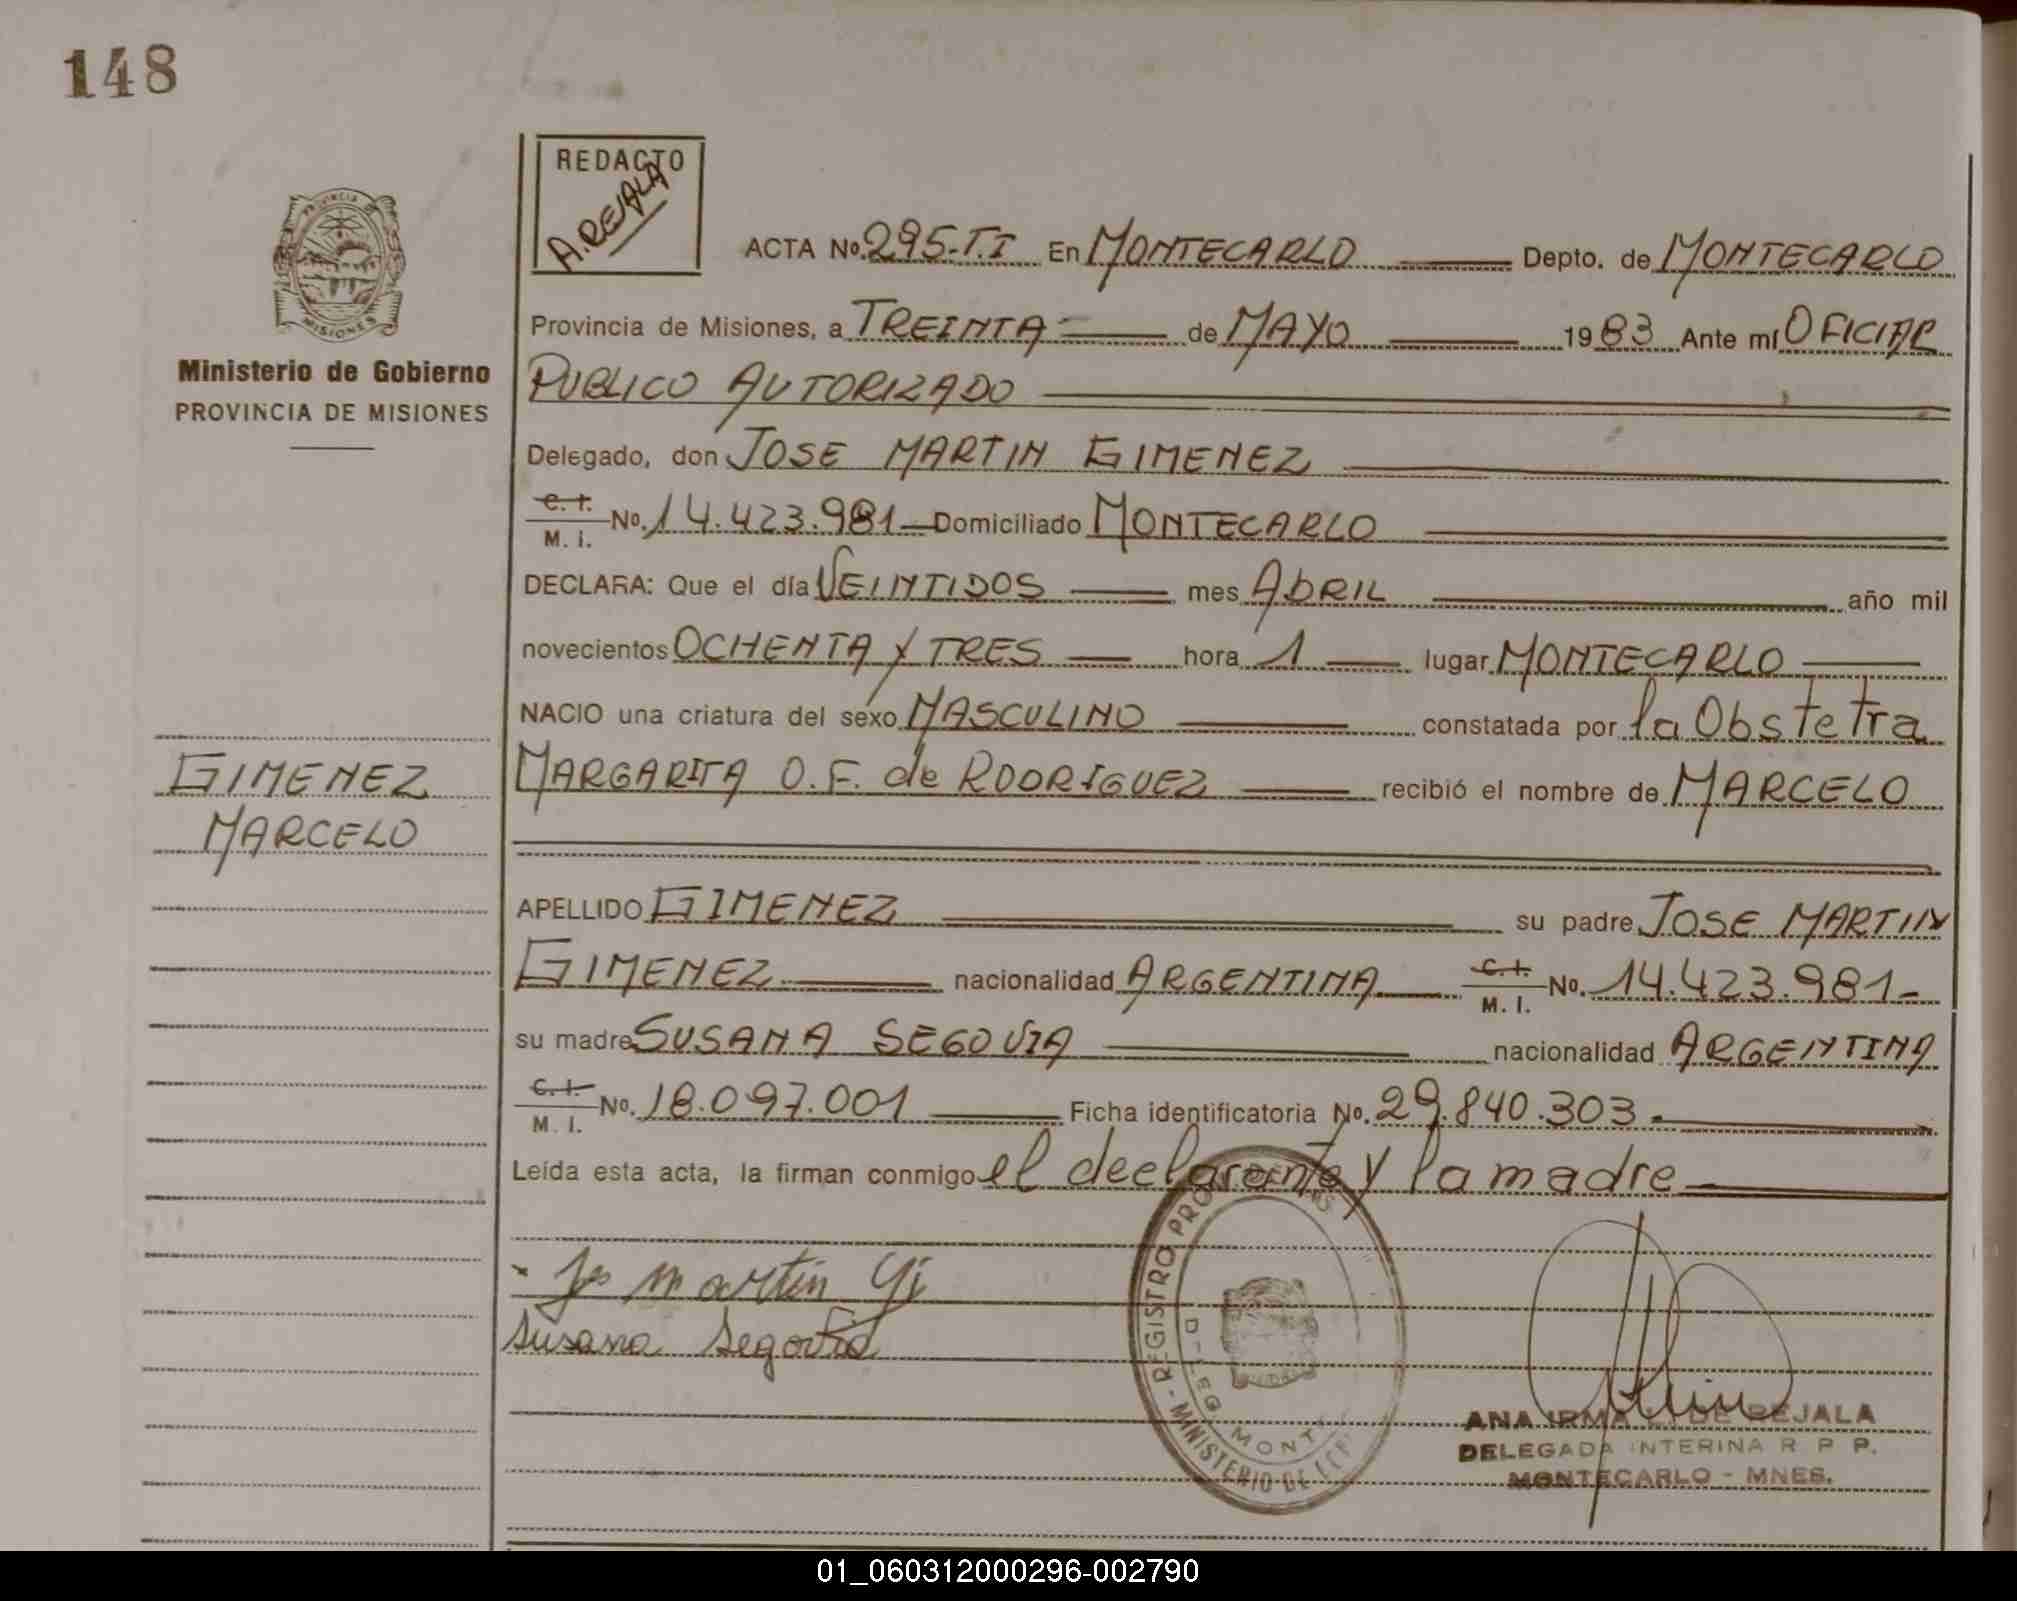 148
REDACTO
A. REJALA
ACTA No. 295-T.I En MONTECARLO Depto. de MONTECARLO
Provincia de Misiones, a TREINTA de MAYO 1983 Ante mí OFICIAL
PUBLICO AUTORIZADO
Delegado, don JOSE MARTIN GIMENEZ
C. I. M. I. No. 14.423.981 Domiciliado MONTECARLO
DECLARA: Que el día VEINTIDOS mes ABRIL año mil
novecientos OCHENTA Y TRES hora 1 lugar MONTECARLO
NACIO una criatura del sexo MASCULINO constatada por la Obstetra
MARGARITA O. F. de RODRIGUEZ recibió el nombre de MARCELO
APELLIDO GIMENEZ su padre JOSE MARTIN
GIMENEZ nacionalidad ARGENTINA C. I. M. I. No. 14.423.981-
su madre SUSANA SEGOVIA nacionalidad ARGENTINA
C. I. M. I. No. 18.097.001 Ficha identificatoria No. 29.840.303-
Leída esta acta, la firman conmigo el declarante y la madre
Martin Gi
Susana Segovia
PROVINCIA DE MISIONES
Ministerio de Gobierno
PROVINCIA DE MISIONES
GIMENEZ
MARCELO
REGISTRO
MINISTERIO DE
DELEG MONT
ANA IRMA DE REJALA
DELEGADA INTERINA R P P.
MONTECARLO - MNES.
01_060312000296-002790